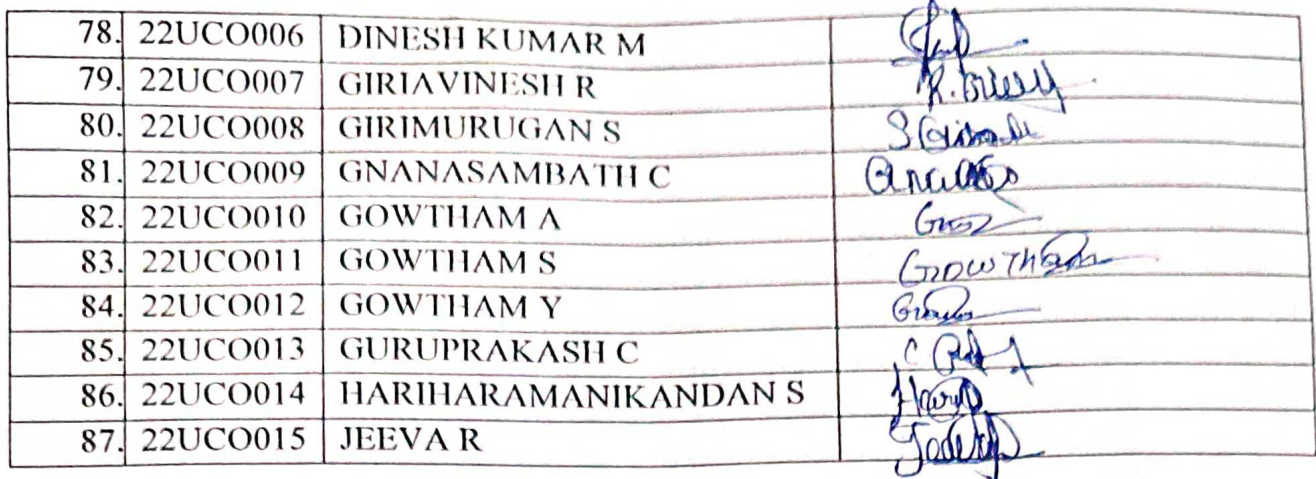 78. 22UCO006 DINESH KUMAR M
79. 22UCO007 GIRIAVINESH R
80. 22UCO008 GIRIMURUGAN S
81. 22UCO009 GNANASAMBATH C
82. 22UCO010 GOWTHAM A
83. 22UCO011 GOWTHAM S
84. 22UCO012 GOWTHAM Y
85. 22UCO013 GURUPRAKASH C
86. 22UCO014 HARIHARAMANIKANDAN S
87. 22UCO015 JEEVA R